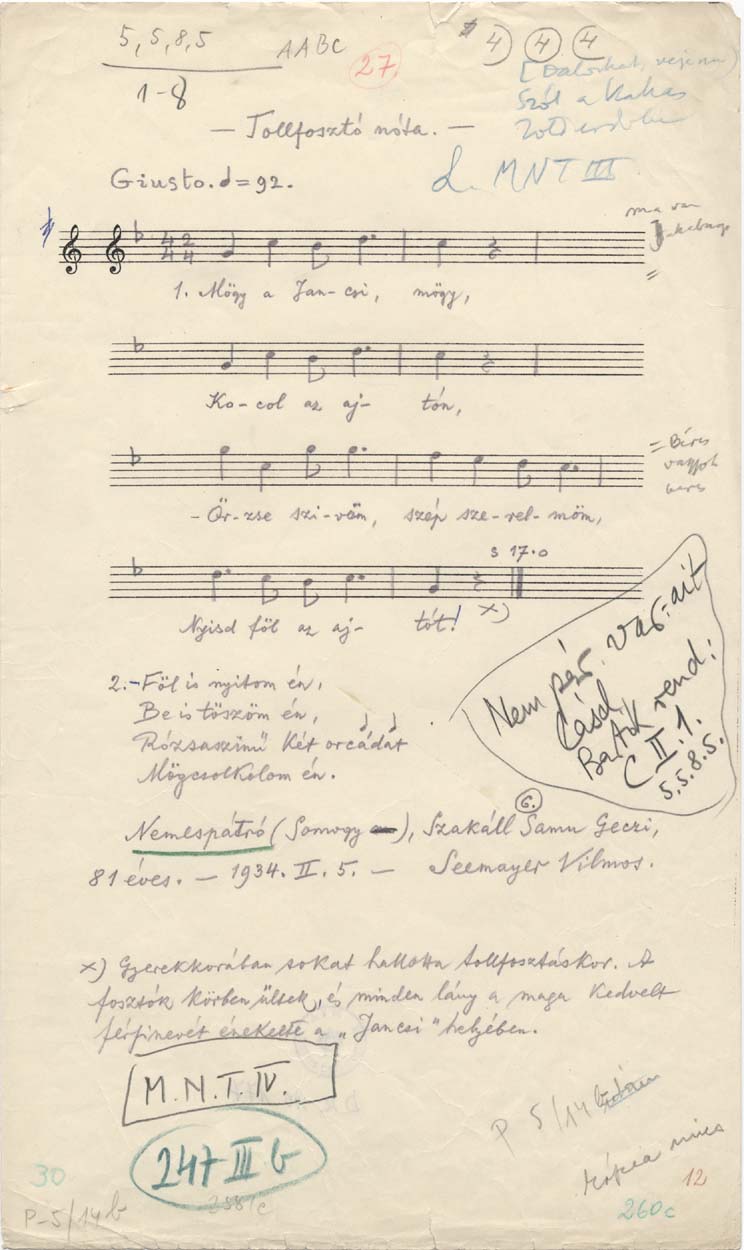 5,5,8,5 AABC 27 4 4 4
1-8
Szól a Kakas
— Tollfosztó nóta. —
Giusto. d=92. L. MNT III
ma van
1. Mögy a Jan-csi, mögy,
Ko-col az aj- tón,
= Béres
vagyok
béres
-Ör-zse szi-vöm, szép sze-rel-möm,
s 17.0
Nyisd föl az aj- tót! x)
2.-Föl is nyitom én,
Be is töszöm én,
Rózsaszinű két orcádat
Mögcsolkolom én.
Nem pár. var-ait
Lásd
Bartók rend:
C II. 1.
5.5.8.5.
G.
Nemespátró (Somogy), Szakáll Samu Geczi,
81 éves. — 1934. II. 5. — Seemayer Vilmos.
x) Gyerekkorában sokat hallotta tollfosztáskor. A
fosztók körben ültek, és minden lány a maga kedvelt
férfinevét énekelte a „Jancsi" helyében.
M.N.T. IV.
P 5/14 b
247 III b
30 12
P-5/14b 260c